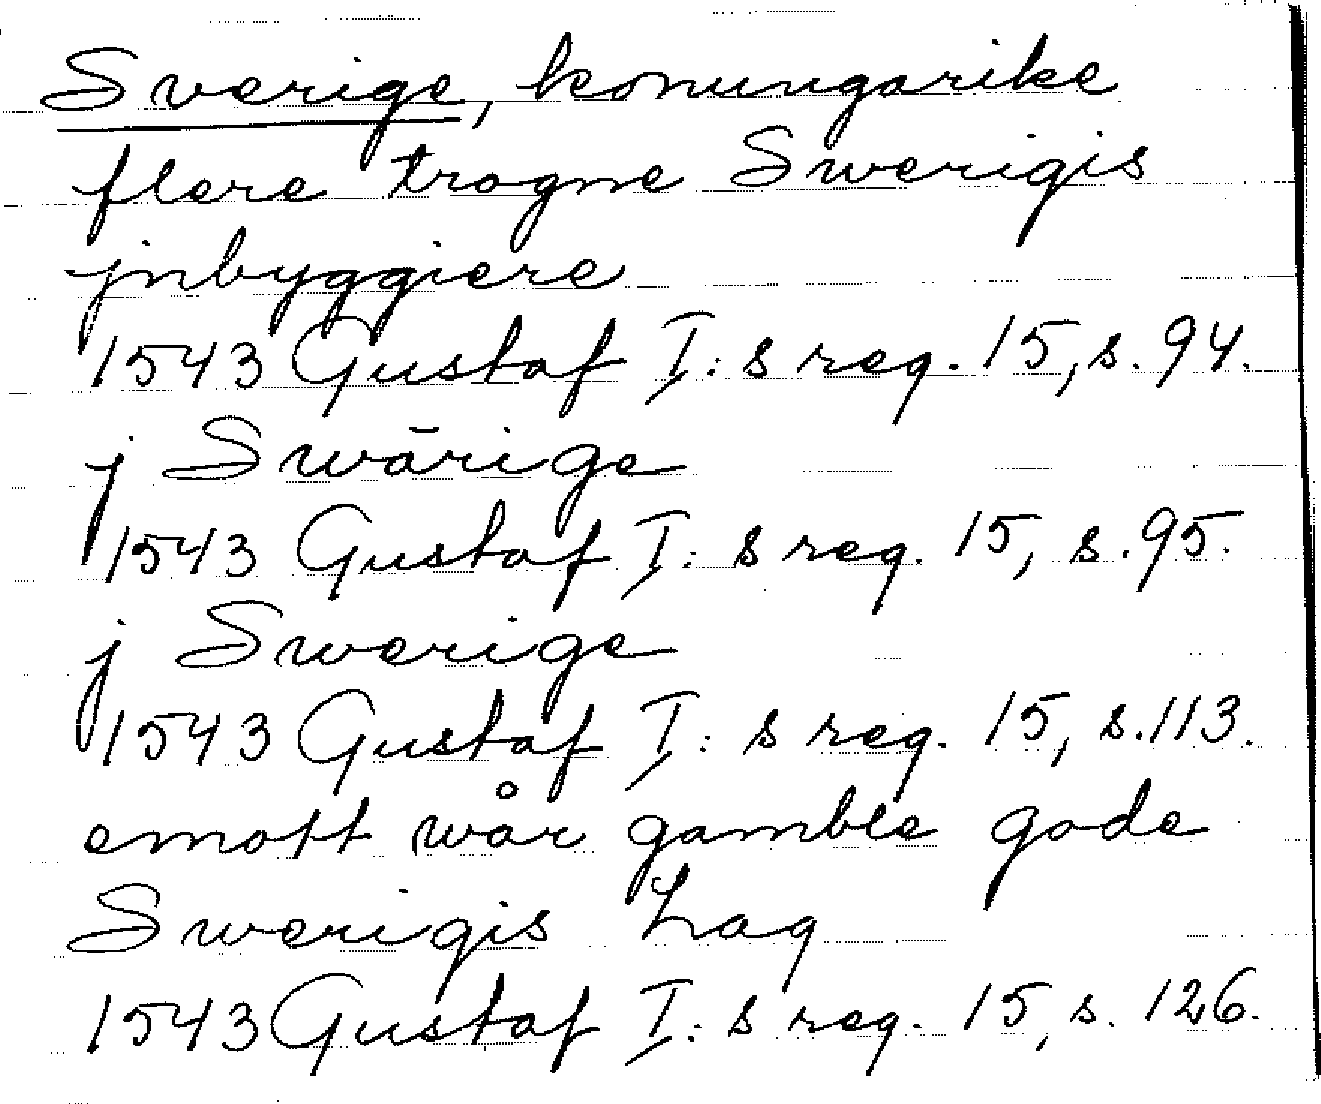 Sverige, konungarike
flere trogne Swerigis
jnbyggiere
1543 Gustaf I: s reg. 15, s. 94.
j Swärige
1543 Gustaf I: s reg. 15, s. 95.
j Swerige
1543 Gustaf I: s reg. 15, s. 113.
emott wår gamble gode
Swerigis Lag
1543 Gustaf I: s reg. 15, s. 126.